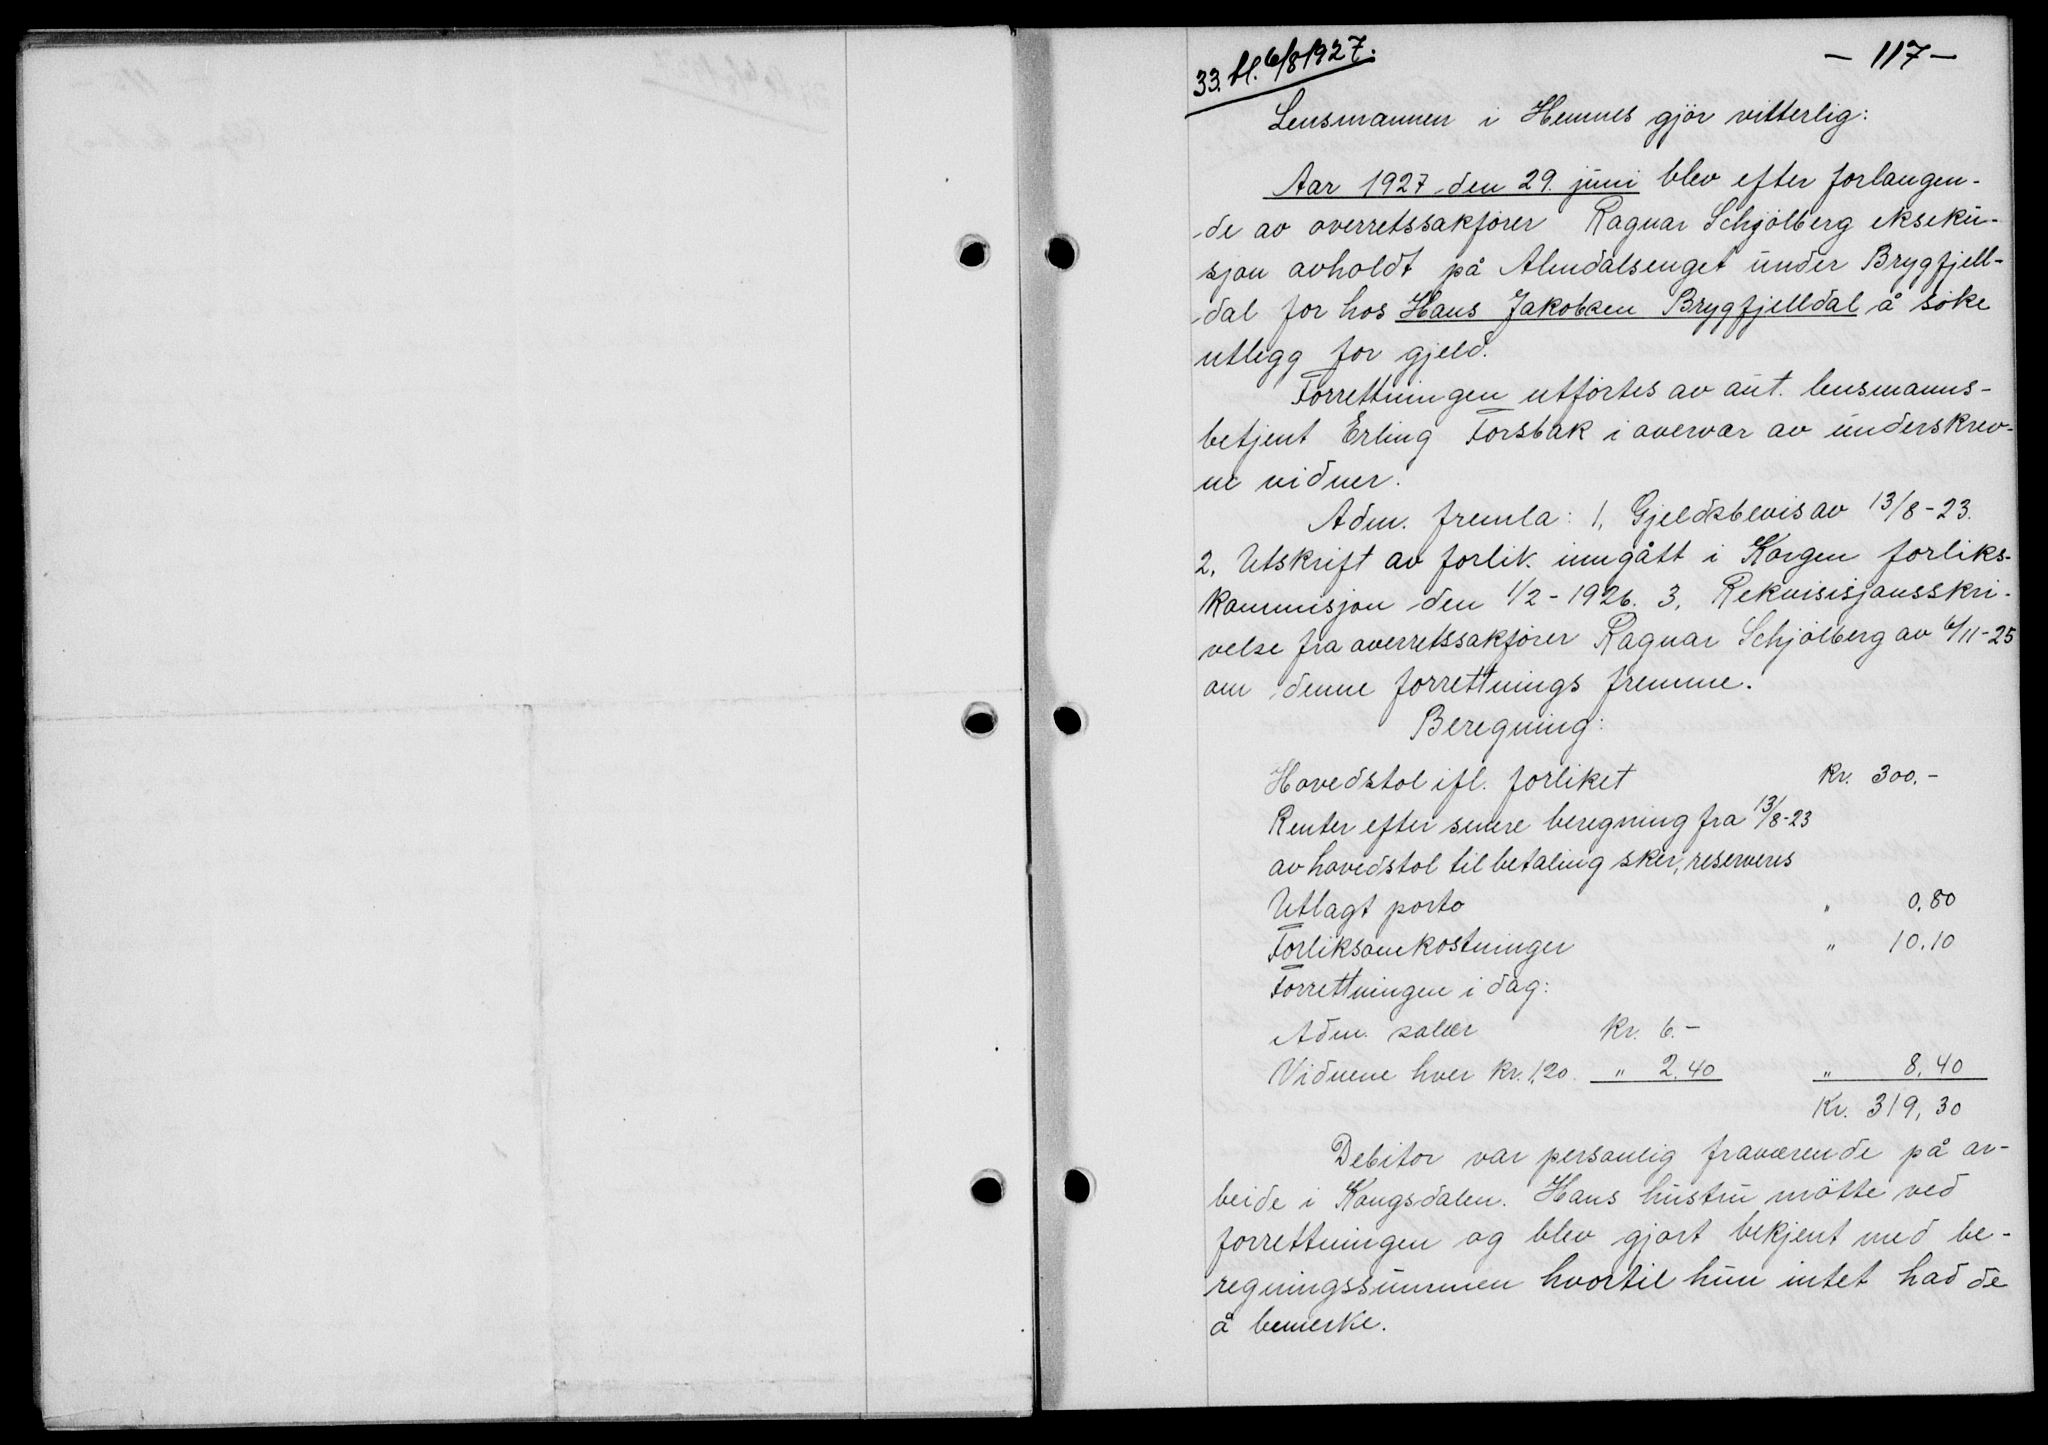 33. bl. 6/8 1927.
- 117 -
Lensmannen i Hemnes gjör vitterlig:
Aar 1927 den 29. juni blev efter forlangen-
de av overretssakförer Ragnar Schjölberg ekseku-
sjon avholdt på Almdalsenget under Brygfjell-
dal for hos Hans Jakobsen Brygfjelldal å söke
utlegg for gjeld.
Forrettningen utförtes av aut. lensmanns-
betjent Erling Forsbak i overvær av underskrev-
ne vidner.
Adm. fremla: 1. Gjeldsbevis av 13/8-23.
2. Utskrift av forlik inngått i Korgen forliks-
kommisjon den 1/2-1926. 3. Rekvisisjonsskri-
velse fra overretssakförer Ragnar Schjölberg av 6/11-25
om denne forrettnings fremme.
Beregning:
Hovedstol ifl. forliket kr. 300.-
Renter efter senere beregning fra 13/8-23
av hovedstol til betaling sker, reserveres
Utlagt porto " 0.80
Forliksomkostninger " 10.10
Forrettningen i dag:
Adm. salær kr. 6.-
Vidnene hver kr. 1,20. " 2.40 " 8.40
Kr. 319,30
Debitor var personlig fraværende på ar-
beide i Kongsdalen. Hans hustru mötte ved
forrettningen og blev gjort bekjent med be-
regningssummen hvortil hun intet hadde
å bemerke.